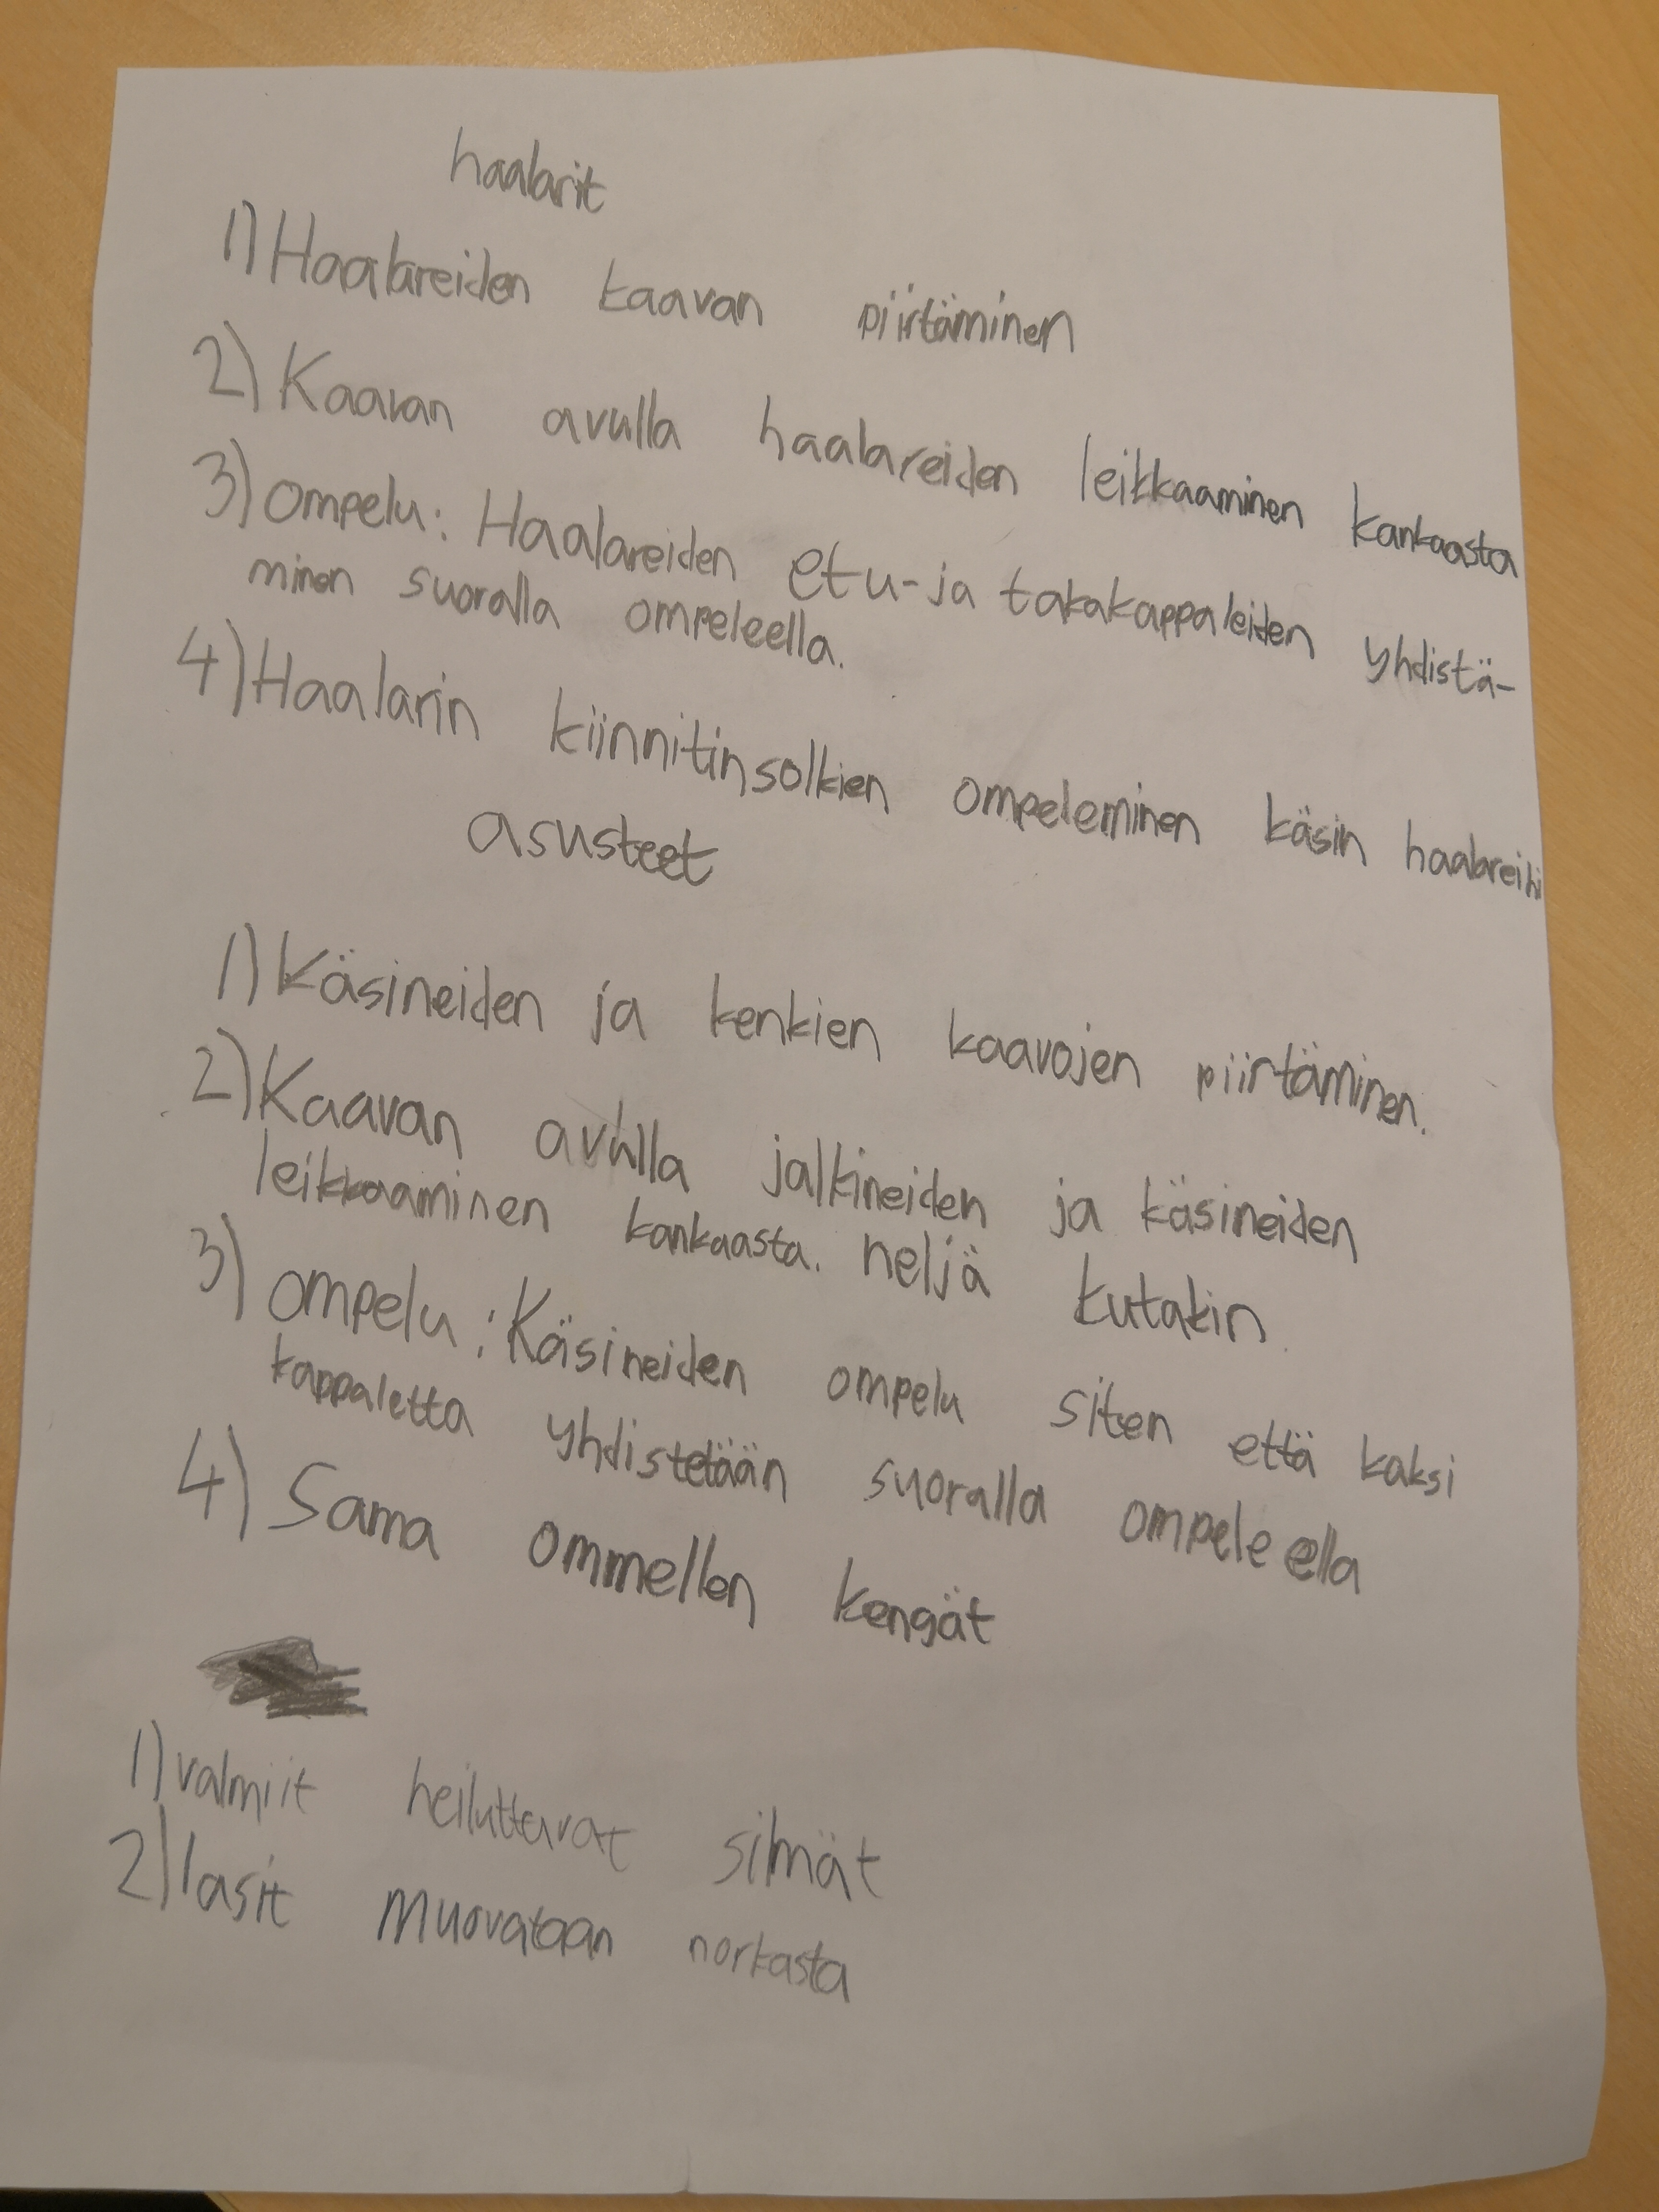 haalarit
1) Haalareiden kaavan piirtäminen
2) Kaavan avulla haalareiden leikkaaminen kankaasta
3) ompelu: Haalareiden etu-ja takakappaleiden yhdistä-
minen suoralla ompeleella.
4) Haalarin kiinnitinsolkien ompeleminen käsin haalareihi
asusteet
1) Käsineiden ja kenkien kaavojen piirtäminen.
2) Kaavan avulla jalkineiden ja käsineiden
leikkaaminen kankaasta. neljä kutakin
3) ompelu: Käsineiden ompelu siten että kaksi
kappaletta yhdistetään suoralla ompeleella
4) Sama ommellen kengät
1) valmiit heiluttavat silmät
2) lasit muovataan norkasta